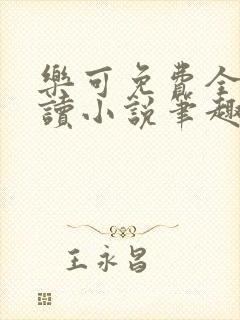 樂可免費全
讀小說筆趣
王永昌